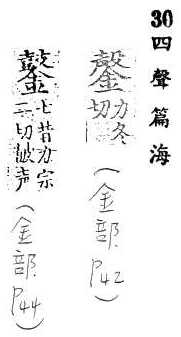 30 四聲篇海
鏧 力冬
切 (金部 P42)
七昔力宗
二切皷声 (金部 P44)